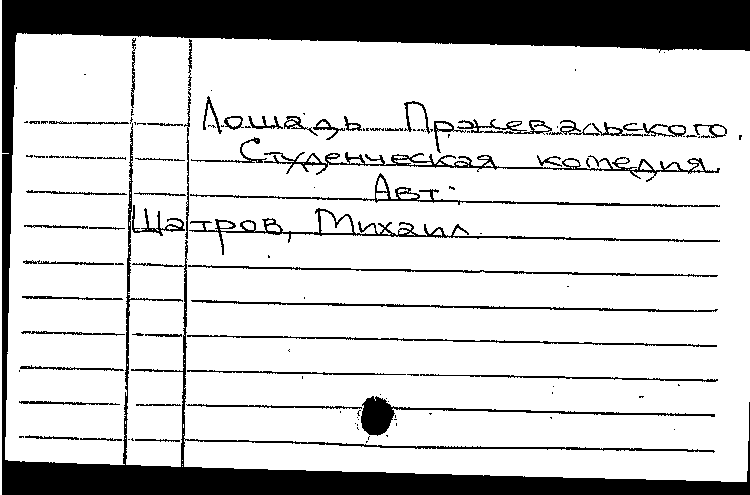 Лошадь Пржевальского.
Студенческая комедия.
Авт:
Шатров, Михаил